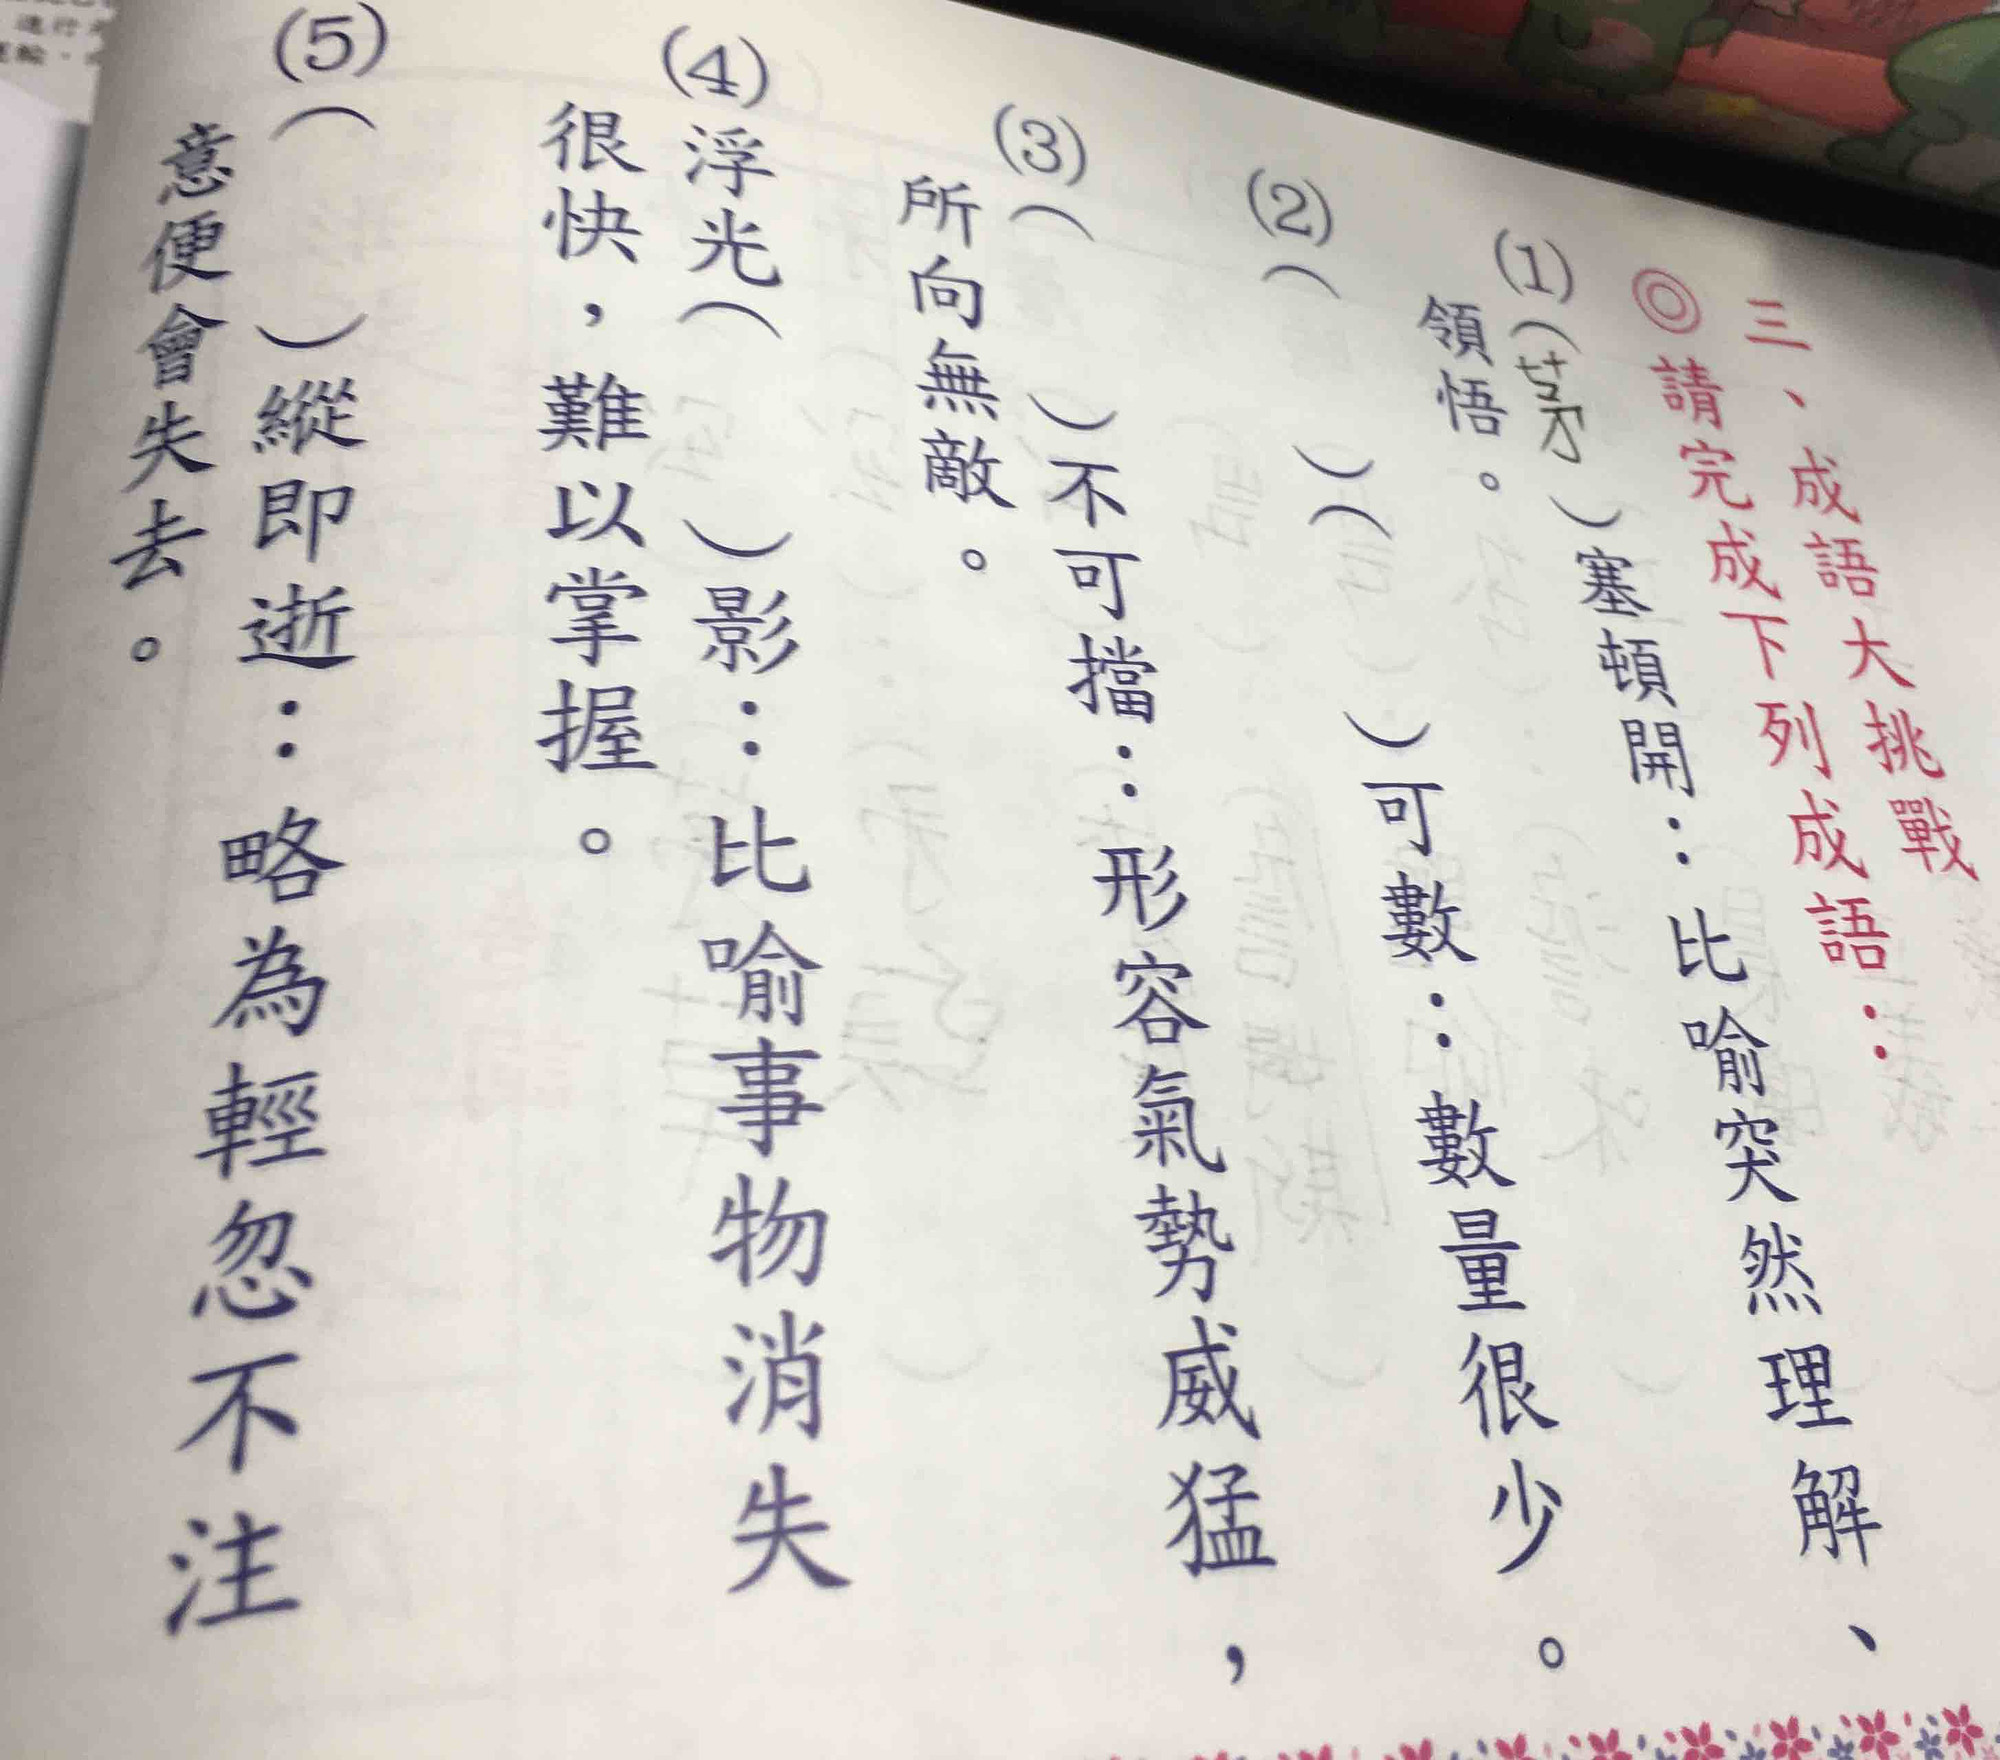 三、成語大挑戰
◎請完成下列成語：
(1)(茅)塞頓開：比喻突然理解、
領悟。
(2)(　)(　)可數：數量很少。
(3)(　)不可擋：形容氣勢威猛，
所向無敵。
(4)浮光(　)影：比喻事物消失
很快，難以掌握。
(5)(　)縱即逝：略為輕忽不注
意便會失去。
進行